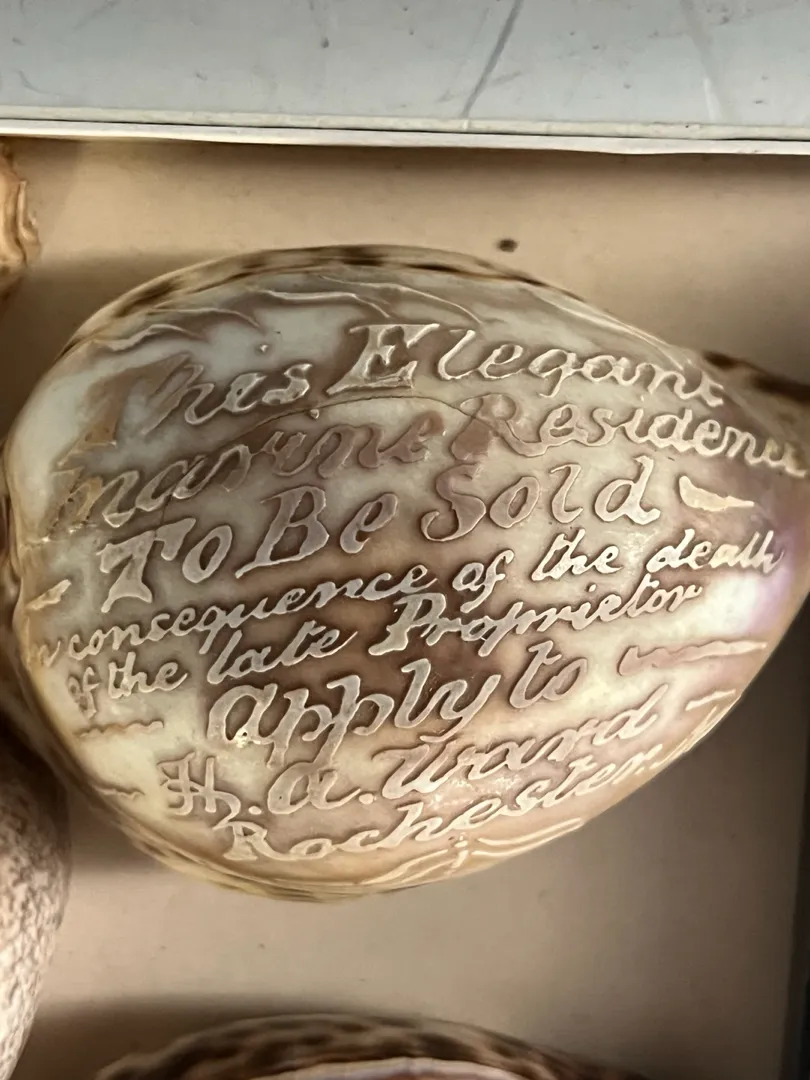 This Elegant
marine Residence
To Be Sold
in consequence of the death
of the late Proprietor
apply to
H. a. Ward
Rochester.